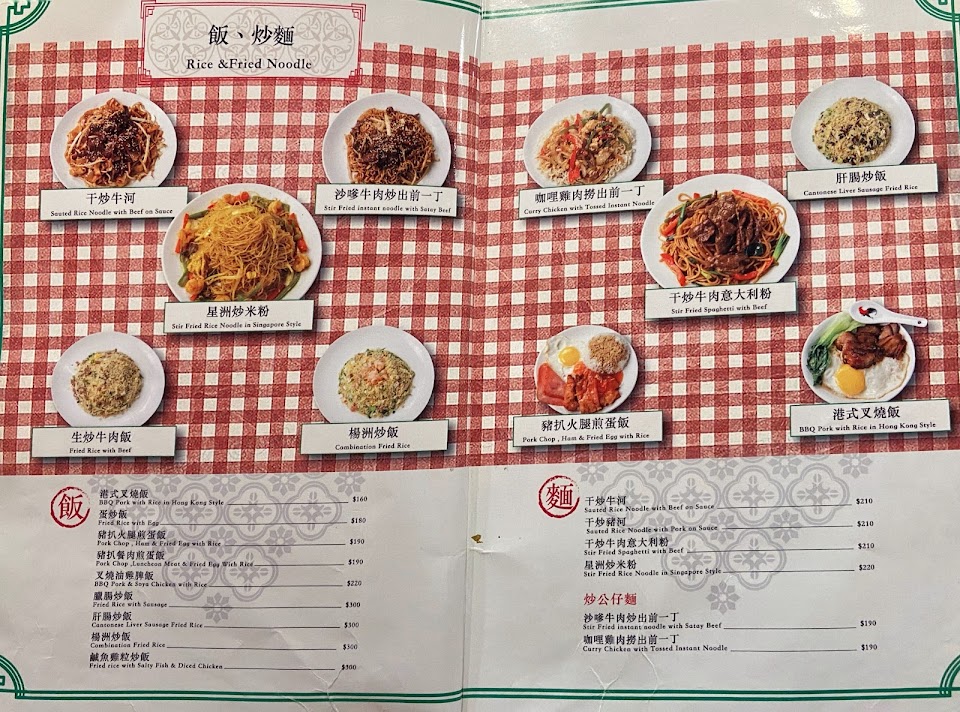 飯、炒麵
Rice &Fried Noodle
干炒牛河
Sauted Rice Noodle with Beef on Sauce
沙嗲牛肉炒出前一丁
Stir Fried instant noodle with Satay Beef
星洲炒米粉
Stir Fried Rice Noodle in Singapore Style
生炒牛肉飯
Fried Rice with Beef
楊洲炒飯
Combination Fried Rice
咖哩雞肉撈出前一丁
Curry Chicken with Tossed Instant Noodle
肝腸炒飯
Cantonese Liver Sausage Fried Rice
干炒牛肉意大利粉
Stir Fried Spaghetti with Beef
豬扒火腿煎蛋飯
Pork Chop , Ham & Fried Egg with Rice
港式叉燒飯
BBQ Pork with Rice in Hong Kong Style
飯
港式叉燒飯
BBQ Pork with Rice in Hong Kong Style $160
蛋炒飯
Fried Rice with Egg $180
豬扒火腿煎蛋飯
Pork Chop , Ham & Fried Egg with Rice $190
豬扒餐肉煎蛋飯
Pork Chop ,Luncheon Meat & Fried Egg With Rice $190
叉燒油雞脾飯
BBQ Pork & Soya Chicken with Rice $220
臘腸炒飯
Fried Rice with Sausage $300
肝腸炒飯
Cantonese Liver Sausage Fried Rice $300
楊洲炒飯
Combination Fried Rice $300
鹹魚雞粒炒飯
Fried rice with Salty Fish & Diced Chicken $300
麵
干炒牛河
Sauted Rice Noodle with Beef on Sauce $210
干炒豬河
Sauted Rice Noodle with Pork on Sauce $210
干炒牛肉意大利粉
Stir Fried Spaghetti with Beef $210
星洲炒米粉
Stir Fried Rice Noodle in Singapore Style $220
炒公仔麵
沙嗲牛肉炒出前一丁
Stir Fried instant noodle with Satay Beef $190
咖哩雞肉撈出前一丁
Curry Chicken with Tossed Instant Noodle $190